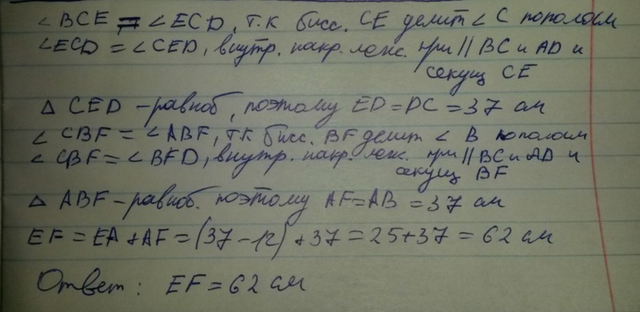 ∠BCE = ∠ECD, т.к бисс. CE делит ∠C пополам
∠ECD = ∠CED, внутр. накр. леж. при || BC и AD и
секущ CE
Δ CED - равноб, поэтому ED = DC = 37 см
∠ CBF = ∠ABF, т.к бисс. BF делит ∠ B пополам
∠ CBF = ∠BFD, внутр. накр. леж. при || BC и AD и
секущ BF
Δ ABF - равноб. поэтому AF = AB = 37 см
EF = EA + AF = (37 - 12) + 37 = 25 + 37 = 62 см
Ответ: EF = 62 см